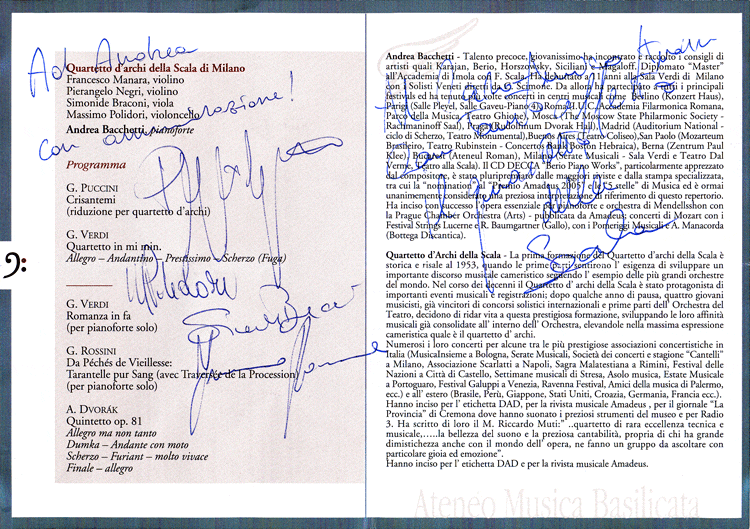 Ad Andrea
con ammirazione!
Quartetto d'archi della Scala di Milano
Francesco Manara, violino
Pierangelo Negri, violino
Simonide Braconi, viola
Massimo Polidori, violoncello
Andrea Bacchetti, pianoforte
Programma
G. PUCCINI
Crisantemi
(riduzione per quartetto d'archi)
G. VERDI
Quartetto in mi min.
Allegro – Andantino – Prestissimo – Scherzo (Fuga)
G. VERDI
Romanza in fa
(per pianoforte solo)
G. ROSSINI
Da Péchés de Vieillesse:
Tarantelle pur Sang (avec Traversée de la Procession)
(per pianoforte solo)
A. DVORÁK
Quintetto op. 81
Allegro ma non tanto
Dumka – Andante con moto
Scherzo – Furiant – molto vivace
Finale – allegro
Andrea Bacchetti - Talento precoce, giovanissimo ha incontrato e raccolto i consigli di
artisti quali Karajan, Berio, Horszowsky, Siciliani e Magaloff. Diplomato "Master"
all'Accademia di Imola con F. Scala. Ha debuttato a 11 anni alla Sala Verdi di Milano
con I Solisti Veneti diretti da C. Scimone. Da allora ha partecipato a tutti i principali
festivals ed ha tenuto più volte concerti in centri musicali come Berlino (Konzert Haus),
Parigi (Salle Pleyel, Salle Gaveu-Piano 4), Roma (I.U.C, Accademia Filarmonica Romana,
Parco della Musica, Teatro Ghione), Mosca (The Moscow State Philharmonic Society -
Rachmaninoff Saal), Praga (Rudolfinum Dvorak Hall), Madrid (Auditorium National -
ciclo di Scherzo, Teatro Monumental), Buenos Aires (Teatro Coliseo), San Paolo (Mozarteum
Brasileiro, Teatro Rubinstein - Concertos Bank Boston Hebraica), Berna (Zentrum Paul
Klee), Bucarest (Ateneul Roman), Milano (Serate Musicali - Sala Verdi e Teatro Dal
Verme, Teatro alla Scala). Il CD DECCA "Berio Piano Works", particolarmente apprezzato
dal compositore, è stato pluripremiato dalle maggiori riviste e dalla stampa specializzata,
tra cui la "nomination" al "Premio Amadeus 2005" e le "5 stelle" di Musica ed è ormai
unanimemente considerato una preziosa interpretazione di riferimento di questo repertorio.
Ha inciso con successo l'opera essenziale per pianoforte e orchestra di Mendellsshon con
la Prague Chamber Orchestra (Arts) - pubblicata da Amadeus; concerti di Mozart con i
Festival Strings Lucerne e R. Baumgartner (Gallo), con i Pomeriggi Musicali e A. Manacorda
(Bottega Discantica).
Quartetto d'Archi della Scala - La prima formazione del Quartetto d'archi della Scala è
storica e risale al 1953, quando le prime parti sentirono l' esigenza di sviluppare un
importante discorso musicale cameristico seguendo l' esempio delle più grandi orchestre
del mondo. Nel corso dei decenni il Quartetto d' archi della Scala è stato protagonista di
importanti eventi musicali e registrazioni; dopo qualche anno di pausa, quattro giovani
musicisti, già vincitori di concorsi solistici internazionali e prime parti dell' Orchestra del
Teatro, decidono di ridar vita a questa prestigiosa formazione, sviluppando le loro affinità
musicali già consolidate all' interno dell' Orchestra, elevandole nella massima espressione
cameristica quale è il quartetto d' archi.
Numerosi i loro concerti per alcune tra le più prestigiose associazioni concertistiche in
Italia (MusicaInsieme a Bologna, Serate Musicali, Società dei concerti e stagione "Cantelli"
a Milano, Associazione Scarlatti a Napoli, Sagra Malatestiana a Rimini, Festival delle
Nazioni a Città di Castello, Settimane musicali di Stresa, Asolo musica, Estate Musicale
a Portoguaro, Festival Galuppi a Venezia, Ravenna Festival, Amici della musica di Palermo,
ecc.) e all' estero (Brasile, Perù, Giappone, Stati Uniti, Croazia, Germania, Francia ecc.).
Hanno inciso per l' etichetta DAD, per la rivista musicale Amadeus , per il giornale "La
Provincia" di Cremona dove hanno suonato i preziosi strumenti del museo e per Radio
3. Ha scritto di loro il M. Riccardo Muti:" ..quartetto di rara eccellenza tecnica e
musicale,.....la bellezza del suono e la preziosa cantabilità, propria di chi ha grande
dimistichezza anche con il mondo dell' opera, ne fanno un gruppo da ascoltare con
particolare gioia ed emozione".
Hanno inciso per l' etichetta DAD e per la rivista musicale Amadeus.
Ateneo Musica Basilicata